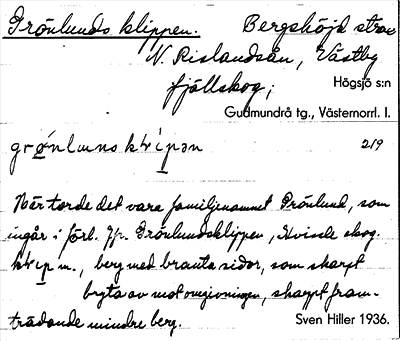 Grönlunds klippen. Bergshöjd strax
N. Rislandsån, Västby
fjällskog; Högsjö s:n
Gudmundrå tg., Västernorrl. l.
grǿnlunsklìpən 219
Här torde det vara familjenamnet Grönlund, som
ingår i förl. Jfr. Grönlundsklippen, Hvisele skog.
m., berg med branta sidor, som skarpt
bryta av mot omgivningen, skarpt fram-
trädande mindre berg. Sven Hiller 1936.